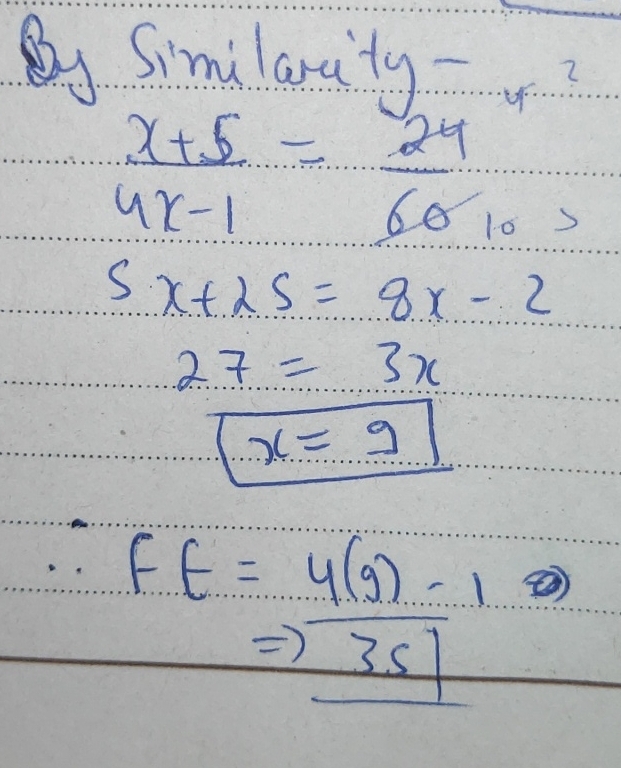 By Similarity -
4 2
x+5 = 24
4x-1 60 10 5
5x+25 = 8x - 2
27 = 3x
x = 9
∴ FE = 4(9) - 1
⇒ 35